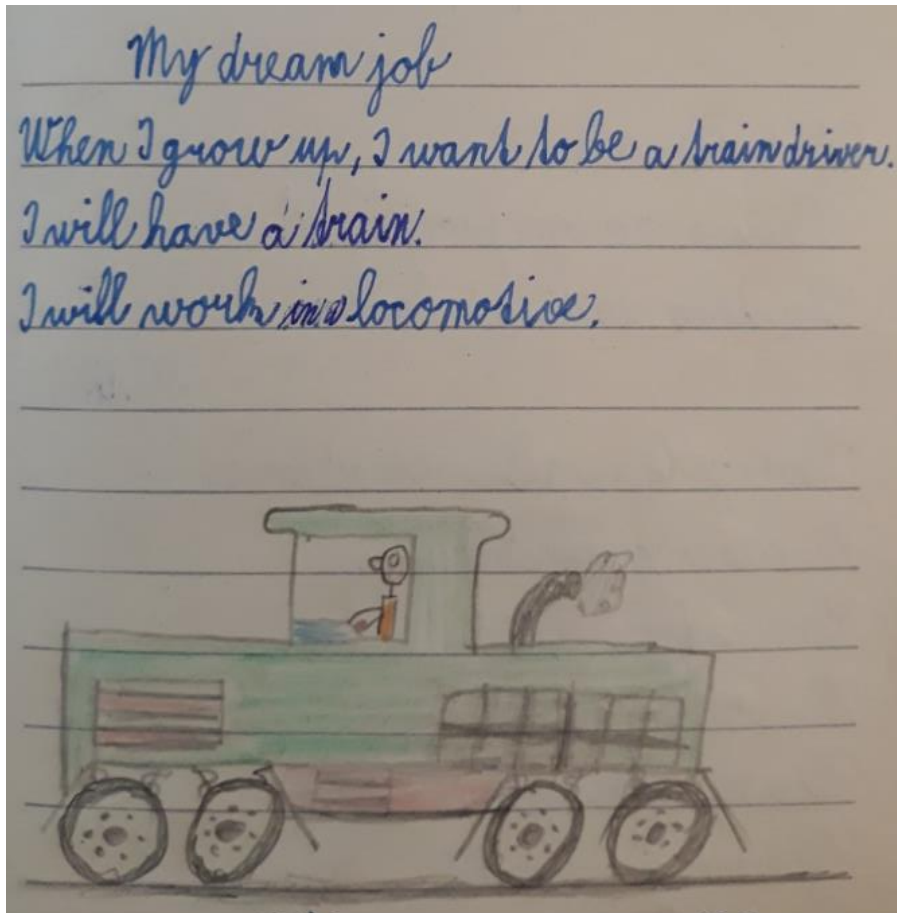 My dream job
When I grow up, I want to be a train driver.
I will have a train.
I will work in a locomotive.